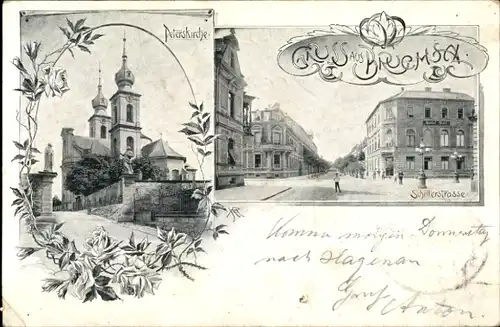 Peterskirche
GRUSS AUS BRUCHSAL.
Schillerstrasse
Komme morgen Donnerstag
nach Hagenau
Gruß Anton